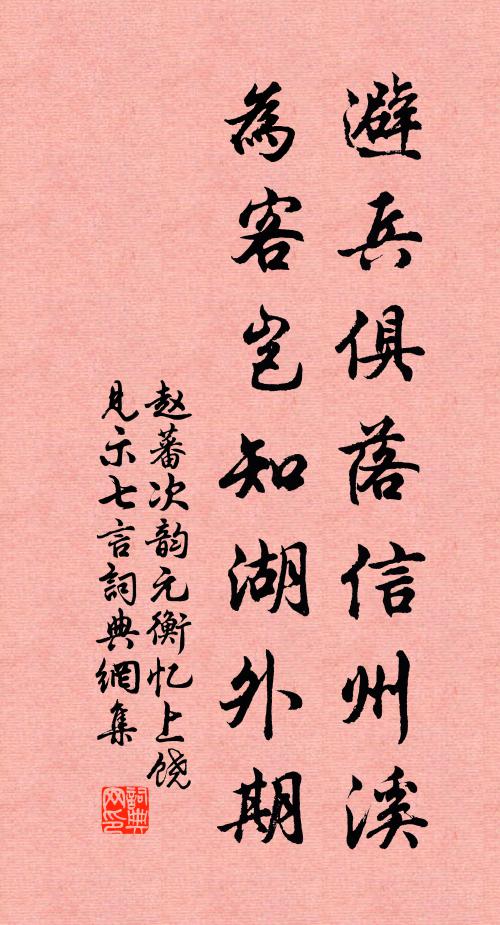 避兵俱落信州溪
為客岂知湖外期
赵蕃次韵元衡忆上饶
见示七言詞典網集
詞典网印